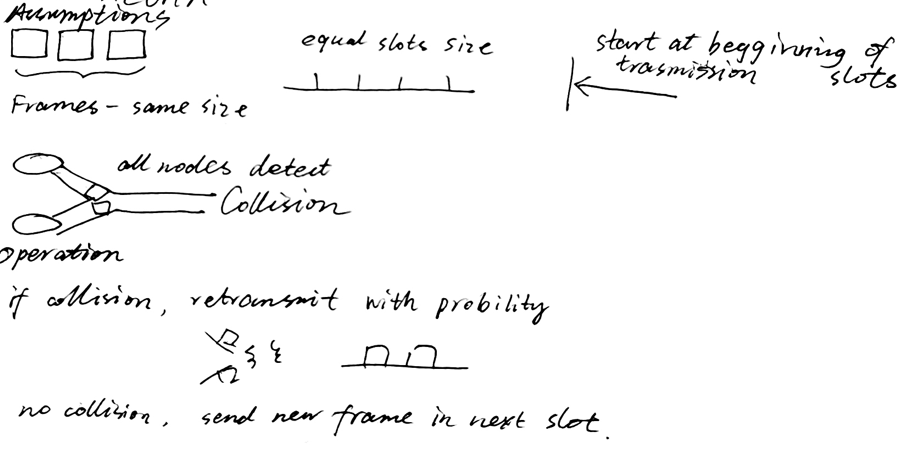 Assumptions
equal slots size
start at beggining of
trasmission slots
Frames - same size
all nodes detect
Collision
Operation
if collision, retransmit with probility
no collision, send new frame in next slot.